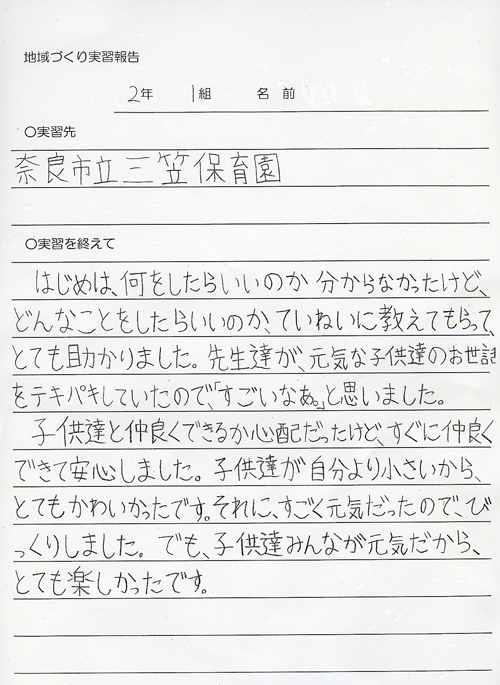 地域づくり実習報告
2年 1組 名前
○実習先
奈良市立三笠保育園
○実習を終えて
はじめは、何をしたらいいのか分からなかったけど、
どんなことをしたらいいのか、ていねいに教えてもらって、
とても助かりました。先生達が、元気な子供達のお世話
をテキパキしていたので、「すごいなぁ。」と思いました。
子供達と仲良くできるか心配だったけど、すぐに仲良く
できて安心しました。子供達が自分より小さいから、
とてもかわいかったです。それに、すごく元気だったので、び
っくりしました。でも、子供達みんなが元気だから、
とても楽しかったです。